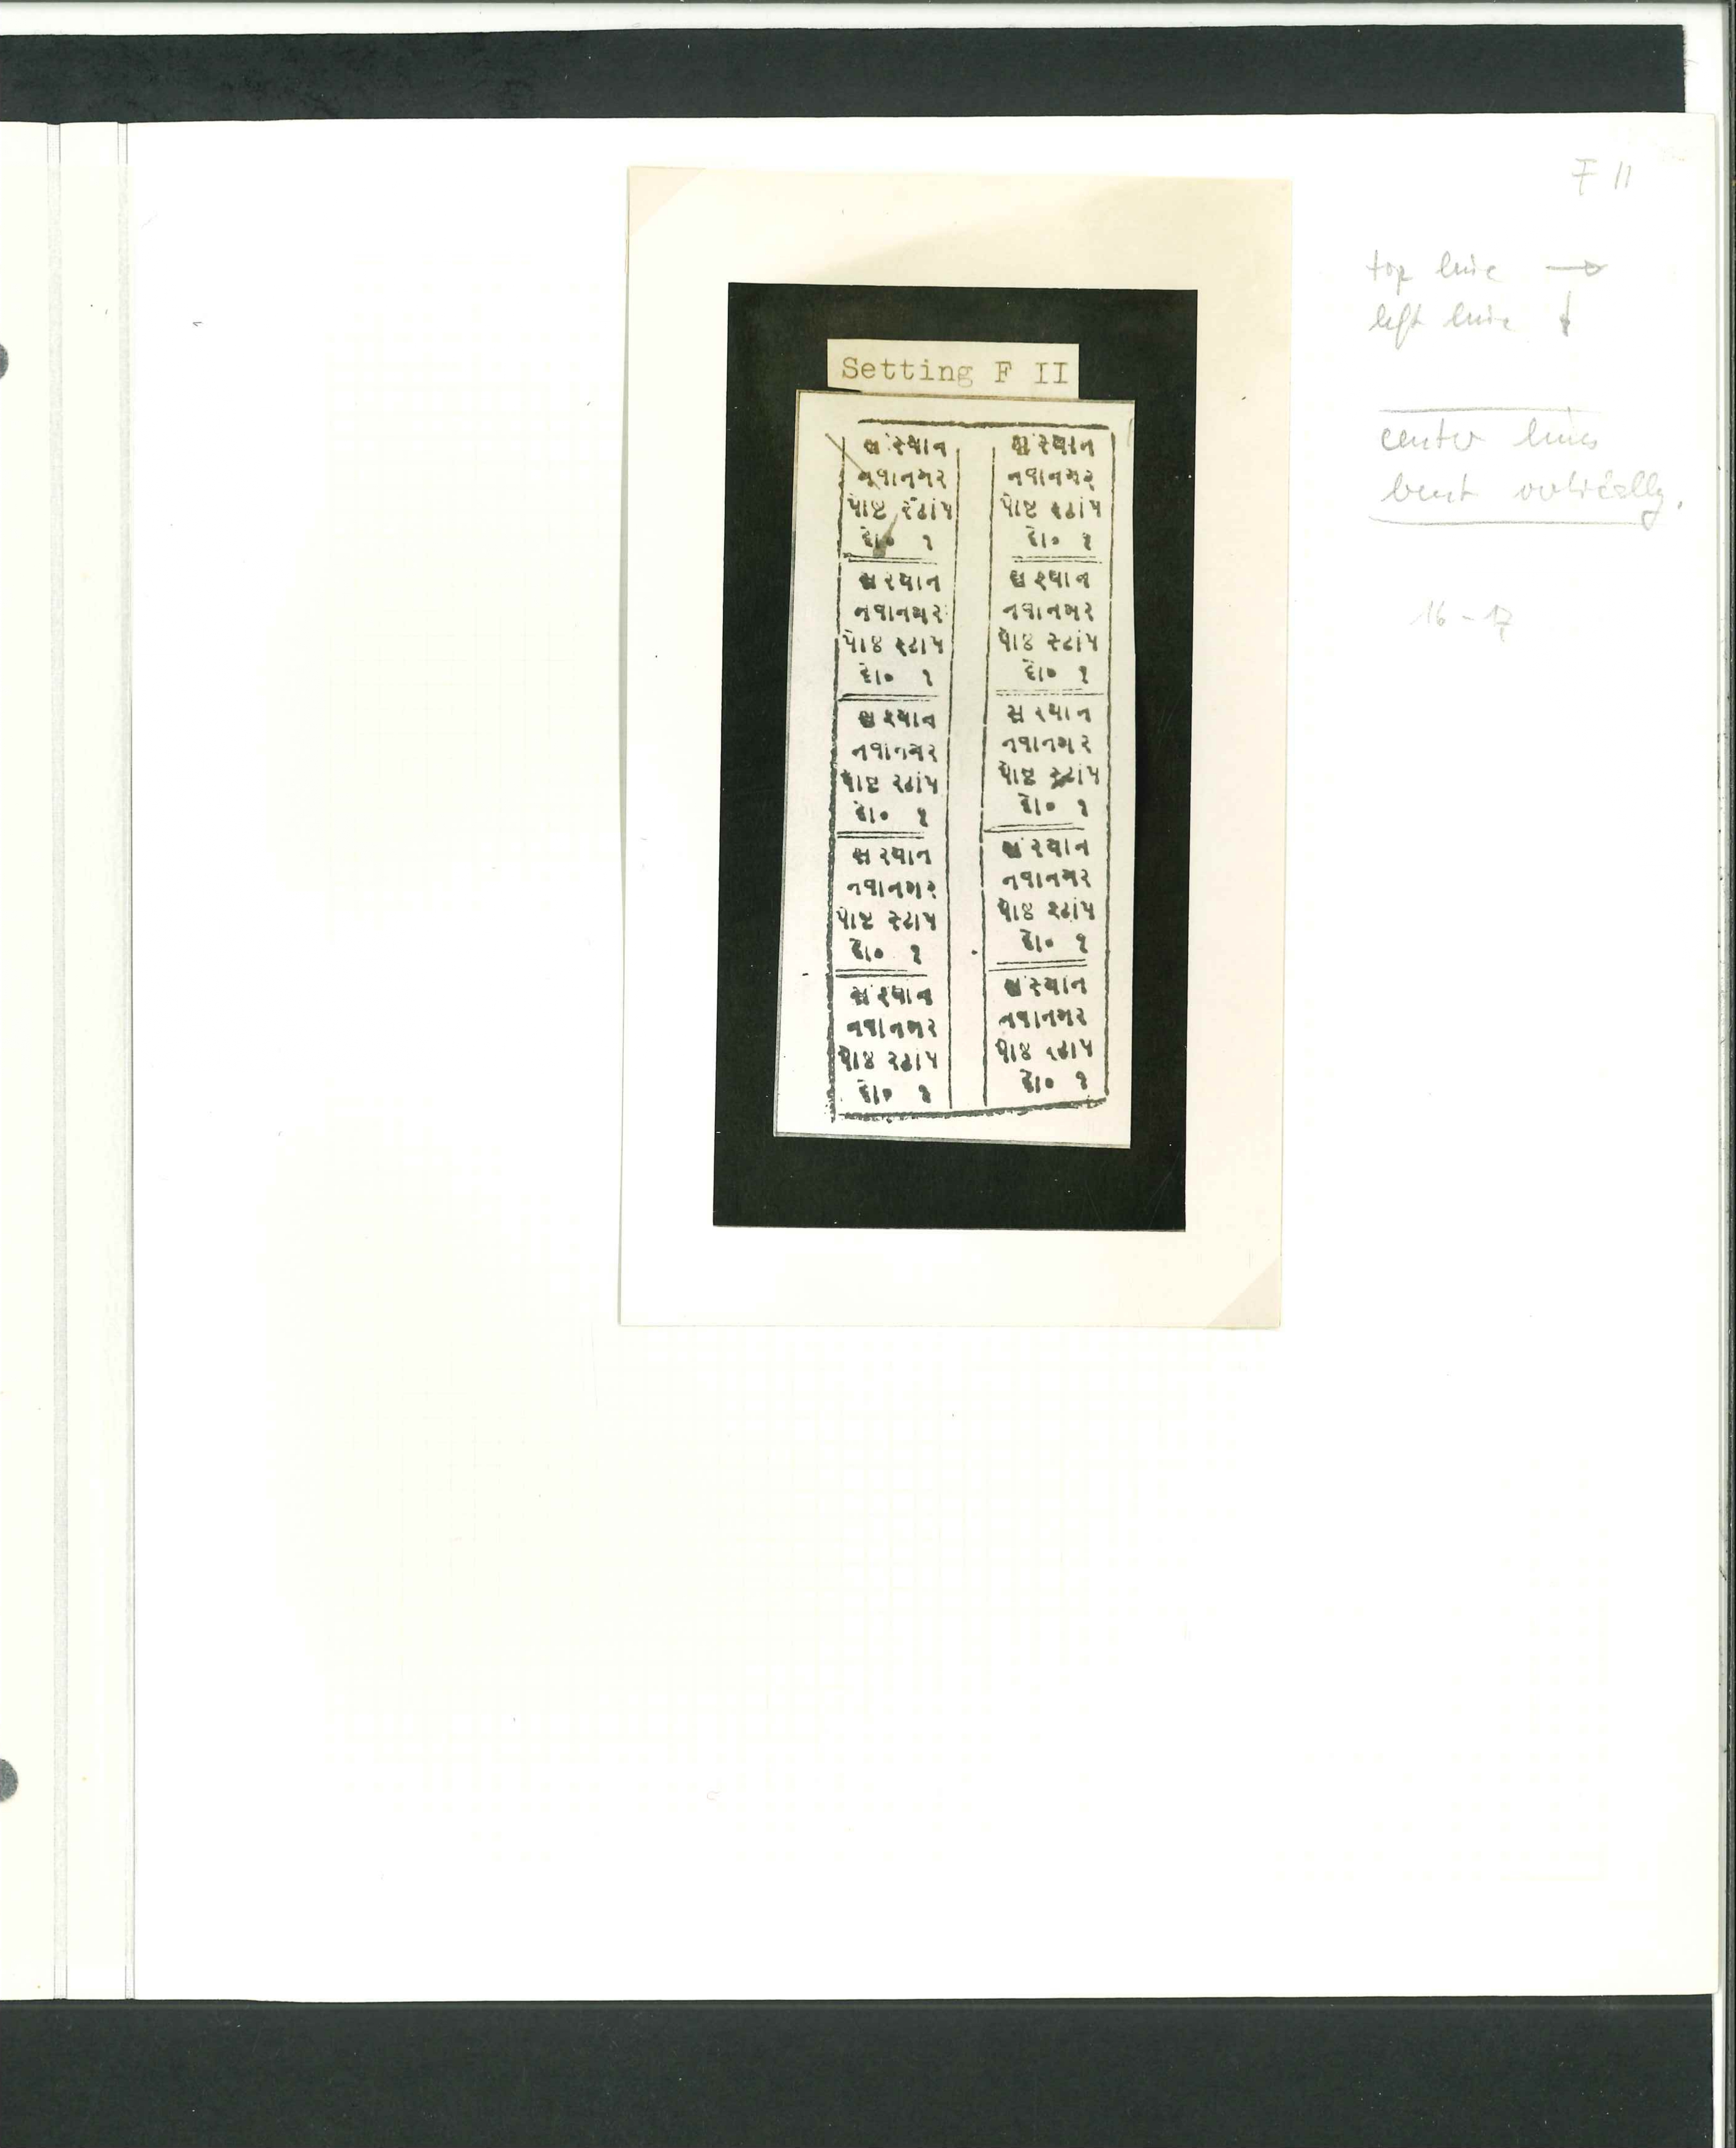 F II
top line →
left line ↓
center lines
bent vertically.
16 - 17
Setting F II
સંસ્થાન
નવાનગર
પોષ્ટ સ્ટાંપ
દો૦ ૧
સંસ્થાન
નવાનગર
પોષ્ટ સ્ટાંપ
દો૦ ૧
સંસ્થાન
નવાનગર
પોષ્ટ સ્ટાંપ
દો૦ ૧
સંસ્થાન
નવાનગર
પોષ્ટ સ્ટાંપ
દો૦ ૧
સંસ્થાન
નવાનગર
પોષ્ટ સ્ટાંપ
દો૦ ૧
સંસ્થાન
નવાનગર
પોષ્ટ સ્ટાંપ
દો૦ ૧
સંસ્થાન
નવાનગર
પોષ્ટ સ્ટાંપ
દો૦ ૧
સંસ્થાન
નવાનગર
પોષ્ટ સ્ટાંપ
દો૦ ૧
સંસ્થાન
નવાનગર
પોષ્ટ સ્ટાંપ
દો૦ ૧
સંસ્થાન
નવાનગર
પોષ્ટ સ્ટાંપ
દો૦ ૧